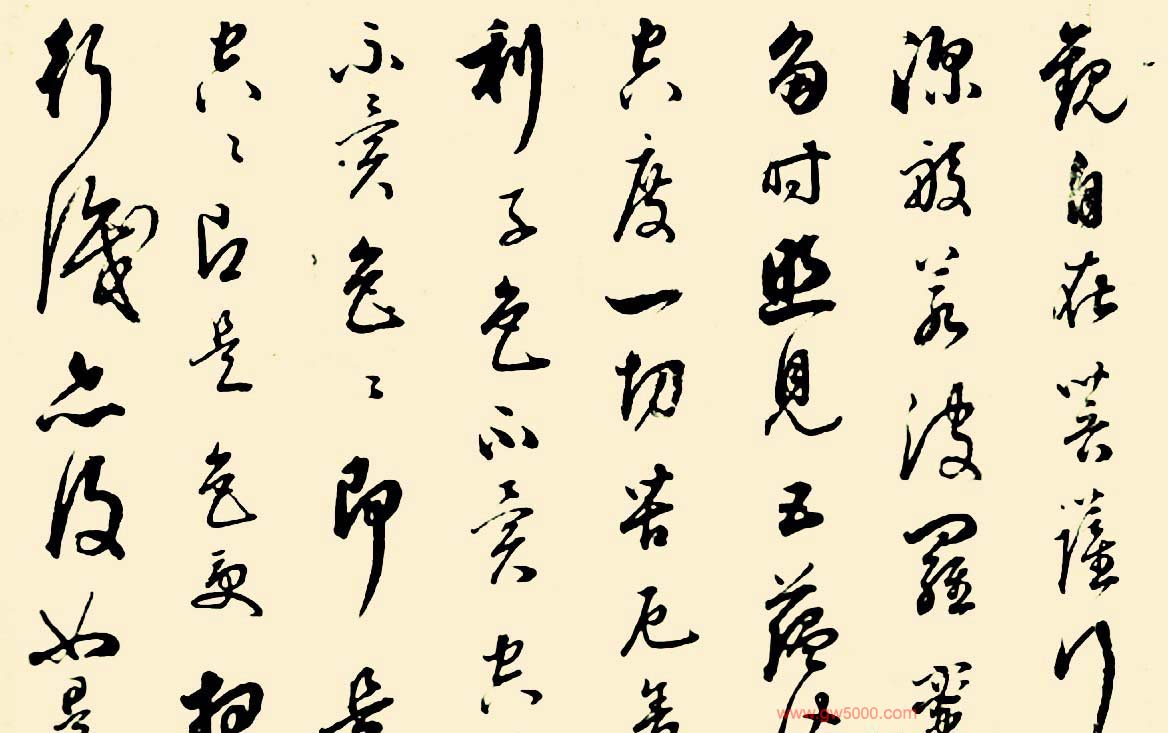 觀自在菩薩行
深般若波羅蜜
多時照見五蘊皆
空度一切苦厄舍
利子色不異空
不異色〻即是
空〻即是色受想
行識亦復如是
www.gw5000.com